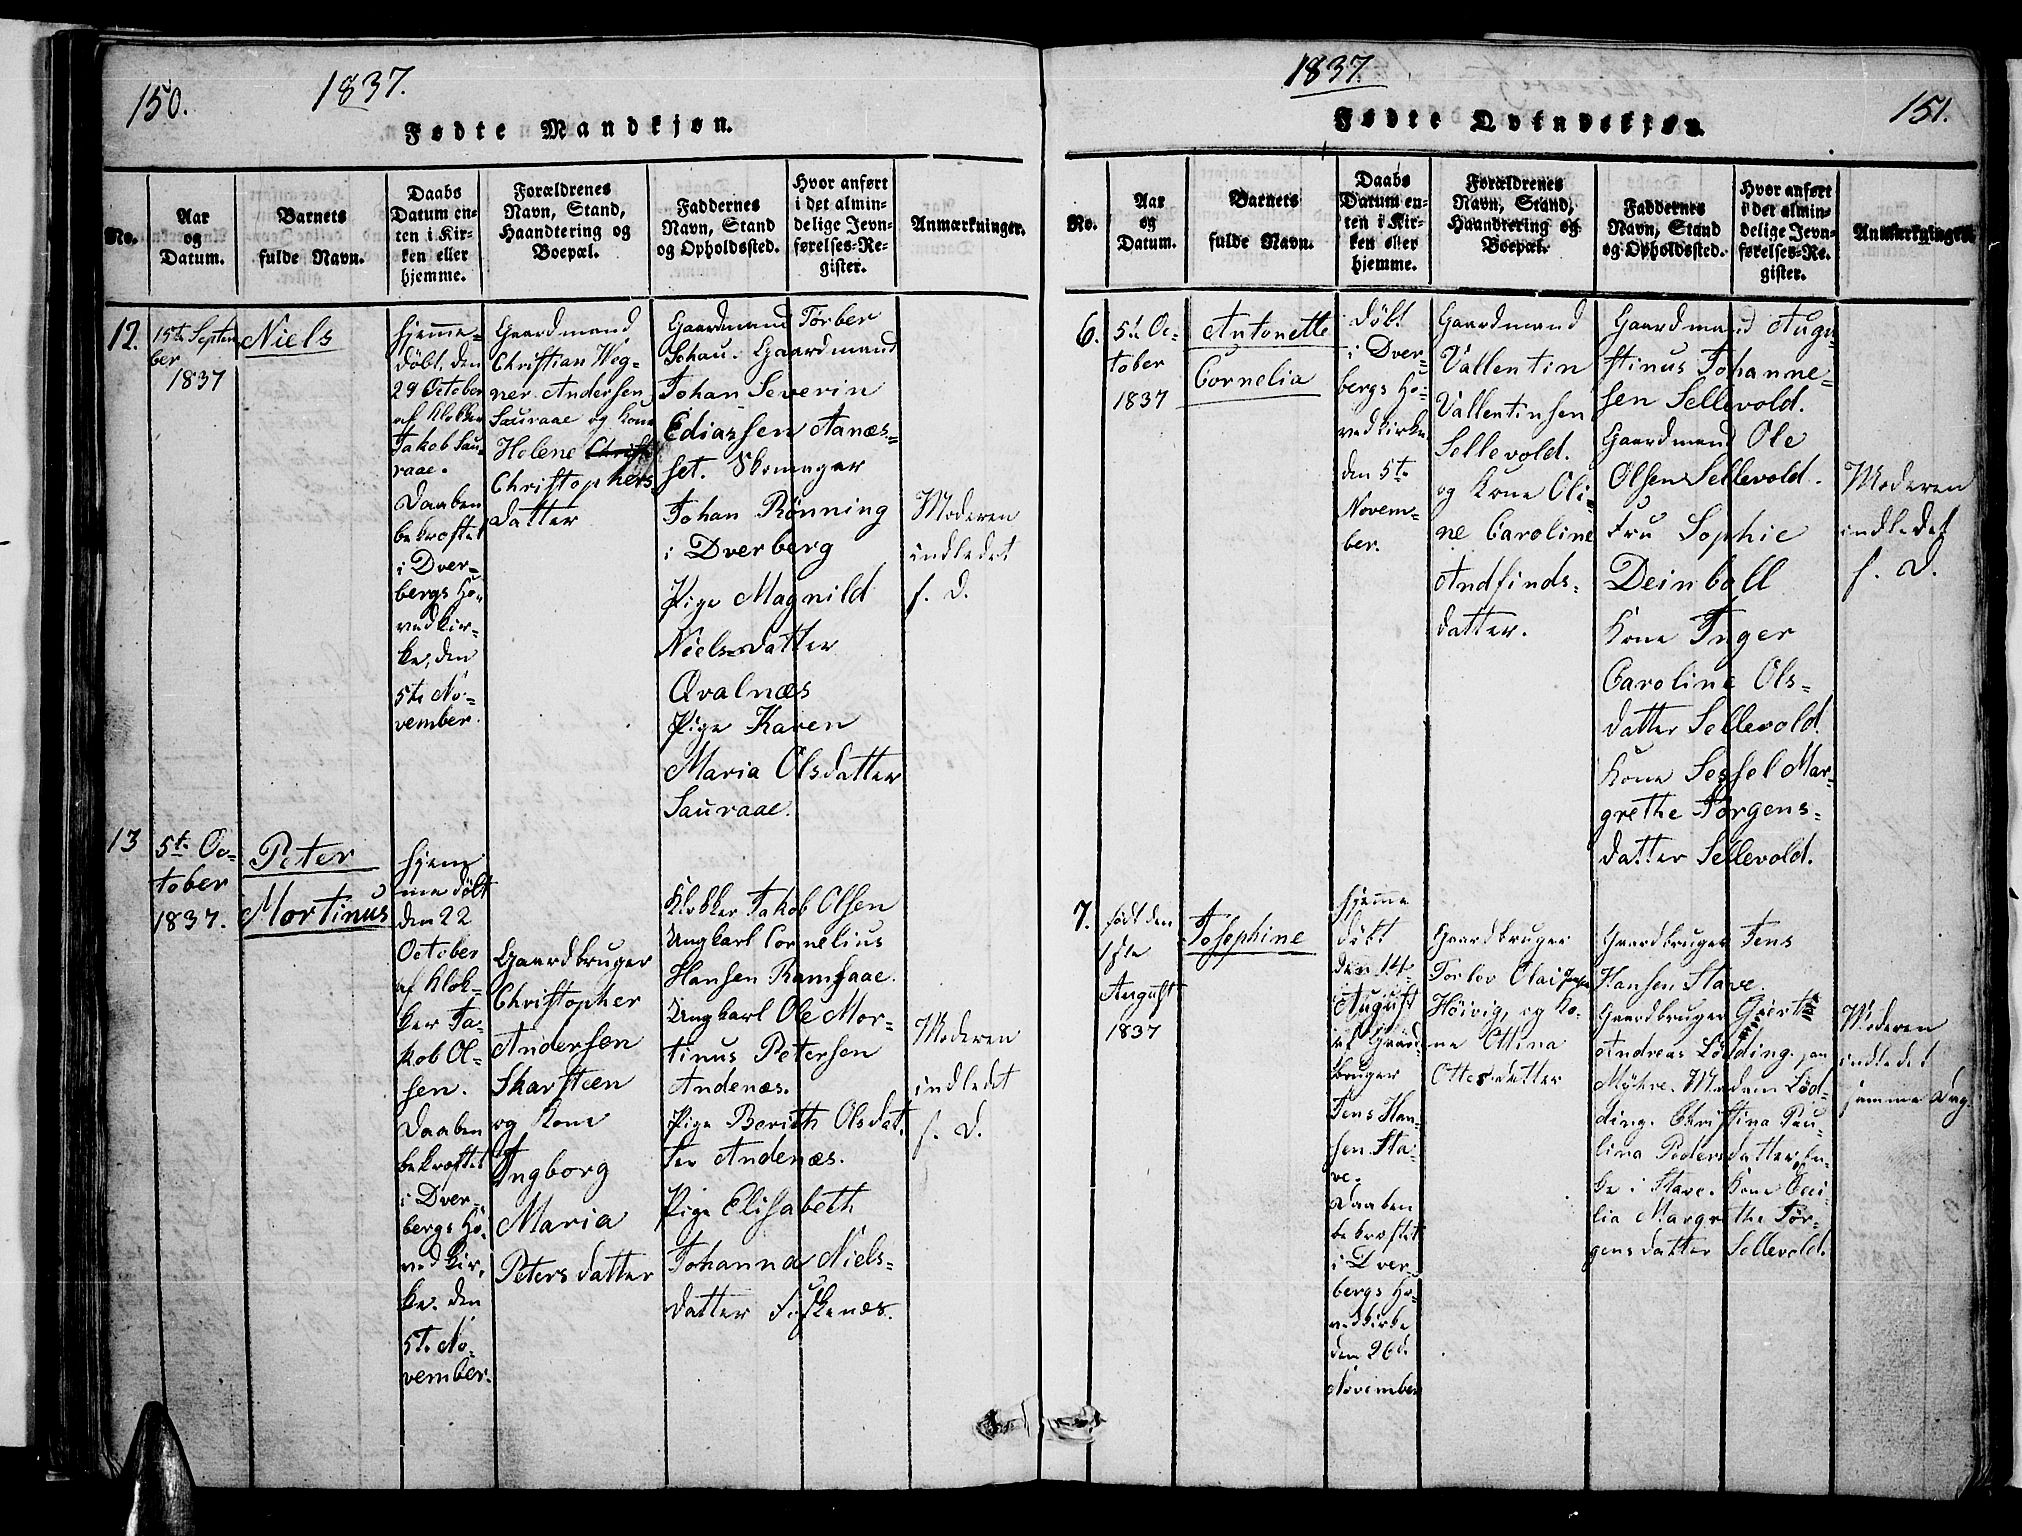 150.
1837.
Fødte Mandkjøn.
No.
Aar
og
Datum.
Barnets
fulde Navn.
Daabs
Datum en-
ten i Kir-
ken eller
hjemme.
Forældrenes
Navn, Stand,
Haandtering og
Boepæl.
Faddernes
Navn, Stand
og Opholdssted.
Hvor anført
i det almin-
delige Jevn-
førelses-Re-
gister.
Anmærkninger.
12.
15te Septem
ber
1837
Niels
hjemme-
døbt, den
29 October
af Klokker
Jakob Sau-
raae.
Daaben
bekræftet
i Dver-
bergs Ho-
vedkir-
ke, den
5te No-
vember.
Gaardmand
Christian Weg-
ner Andersen
Sauraae og Kone
Helene Christ
Christophers
datter
Gaardmand Torber
Johan. Gaardmand
Johan Severin
Ediassen Aanæs-
set. Skomager
Johan Rönning
i Dverberg
Pige Magnild
Nielsdatter
Qvalnæs
Pige Karen
Maria Olsdatter
Sauraae.
Moderen
indledet
s. D.
13
5te Oc-
tober
1837.
Peter
Mortinus
hjem
me döbt
den 22
October
af Klok-
ker Ja-
kob Ol-
sen.
Daaben
bekræftet
i Dver-
bergs Ho-
vedkir-
ke. den
5te No-
vember.
Gaardbruger
Christopher
Andersen
Skarsteen
og Kone
Ingborg
Maria
Petersdatter
Klokker Jakob Olsen
Ungkarl Cornelius
Hansen Ramsaae.
Ungkarl Ole Mor-
tinus Petersen
Andenæs.
Pige Berith Olsdat-
ter Andenæs.
Pige Elisabeth
Johanna Niels-
datter
Moderen
indledet
s. D.
1837.
151.
Fødte Qvindekjøn.
No.
Aar
og
Datum.
Barnets
fulde Navn.
Daabs
Datum en-
ten i Kir-
ken eller
hjemme.
Forældrenes
Navn, Stand,
Haandtering og
Boepæl.
Faddernes
Navn, Stand
og Opholdssted.
Hvor anført
i det almin-
delige Jevn-
førelses-Re-
gister.
Anmærkninger.
6.
5t Oc-
tober
1837
Antonette
Cornelia
Döbt
i Dver-
bergs Ho-
vedkirke
den 5te
Novem-
ber.
Gaardmand
Vallentin
Vallentinsen
Sellevold.
og Kone Oli-
ne Caroline
Andfinds-
datter.
Gaardmand Augu-
stinus Johanne-
sen Sellevold.
Gaardmand Ole
Olsen Sellevold.
Fru Sophie
Deinboll
Kone Inger
Caroline Ols-
datter Sellevold.
Kone Sessel Mar-
grethe Jørgens-
datter Sellevold.
Moderen
indledet
s. D.
7.
født den
1ste
August
1837
Josephine
hjemme
döbt
den 14
August
af Gaard-
bruger
Jens Han-
sen Sta-
ve.
Daaben
bekræftet
i Dver-
bergs Ho-
vedkirke
den 26de
November
Gaardbruger
Torlov Olai
Höivig, og Ko-
ne Ottina
Ottesdatter
Gaardbruger Jens
Hansen Stave.
Gaardbruger Giert
Andreas Lödding.
Myhre. Madam Löd-
ding. Christina Pau-
lina Pedersdatter, En-
ke i Stave. Kone Ceci-
lia Margrethe Jør-
gensdatter Sellevold.
Moderen
indledet
samme Dag.